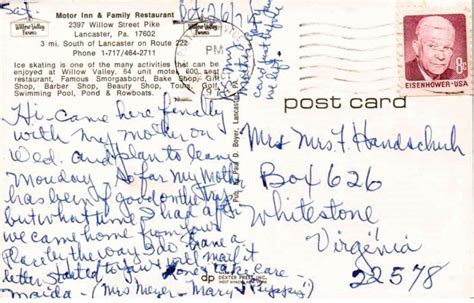 Sat.
Motor Inn & Family Restaurant
2397 Willow Street Pike
Lancaster, Pa. 17602
3 mi. South of Lancaster on Route 222
Phone 1-717/464-2711
Ice skating is one of the many activities that can be
enjoyed at Willow Valley. 64 unit motel, 600 seat
restaurant, Famous Smorgasbord, Bake Shop, Gift
Shop, Barber Shop, Beauty Shop, Tours, Golf,
Swimming Pool, Pond & Rowboats.
Willow Valley
PM
EISENHOWER·USA
8c
post card
Pub. by Paul D. Boyer, Lancaster, Pa.
DEXTER PRESS, INC.
dp
Hi- Came here finally
with my mother on
Wed. and plan to leave
Monday So far my Mother
has been good on the trip
but what time I had after
we came home from your
Place by the way I do have a
letter started to you & will mail it
care
Maida - (Mrs Meyer - Mary
Mrs Mrs F Handschuh
Box 626
Whitestone
Virginia
22578